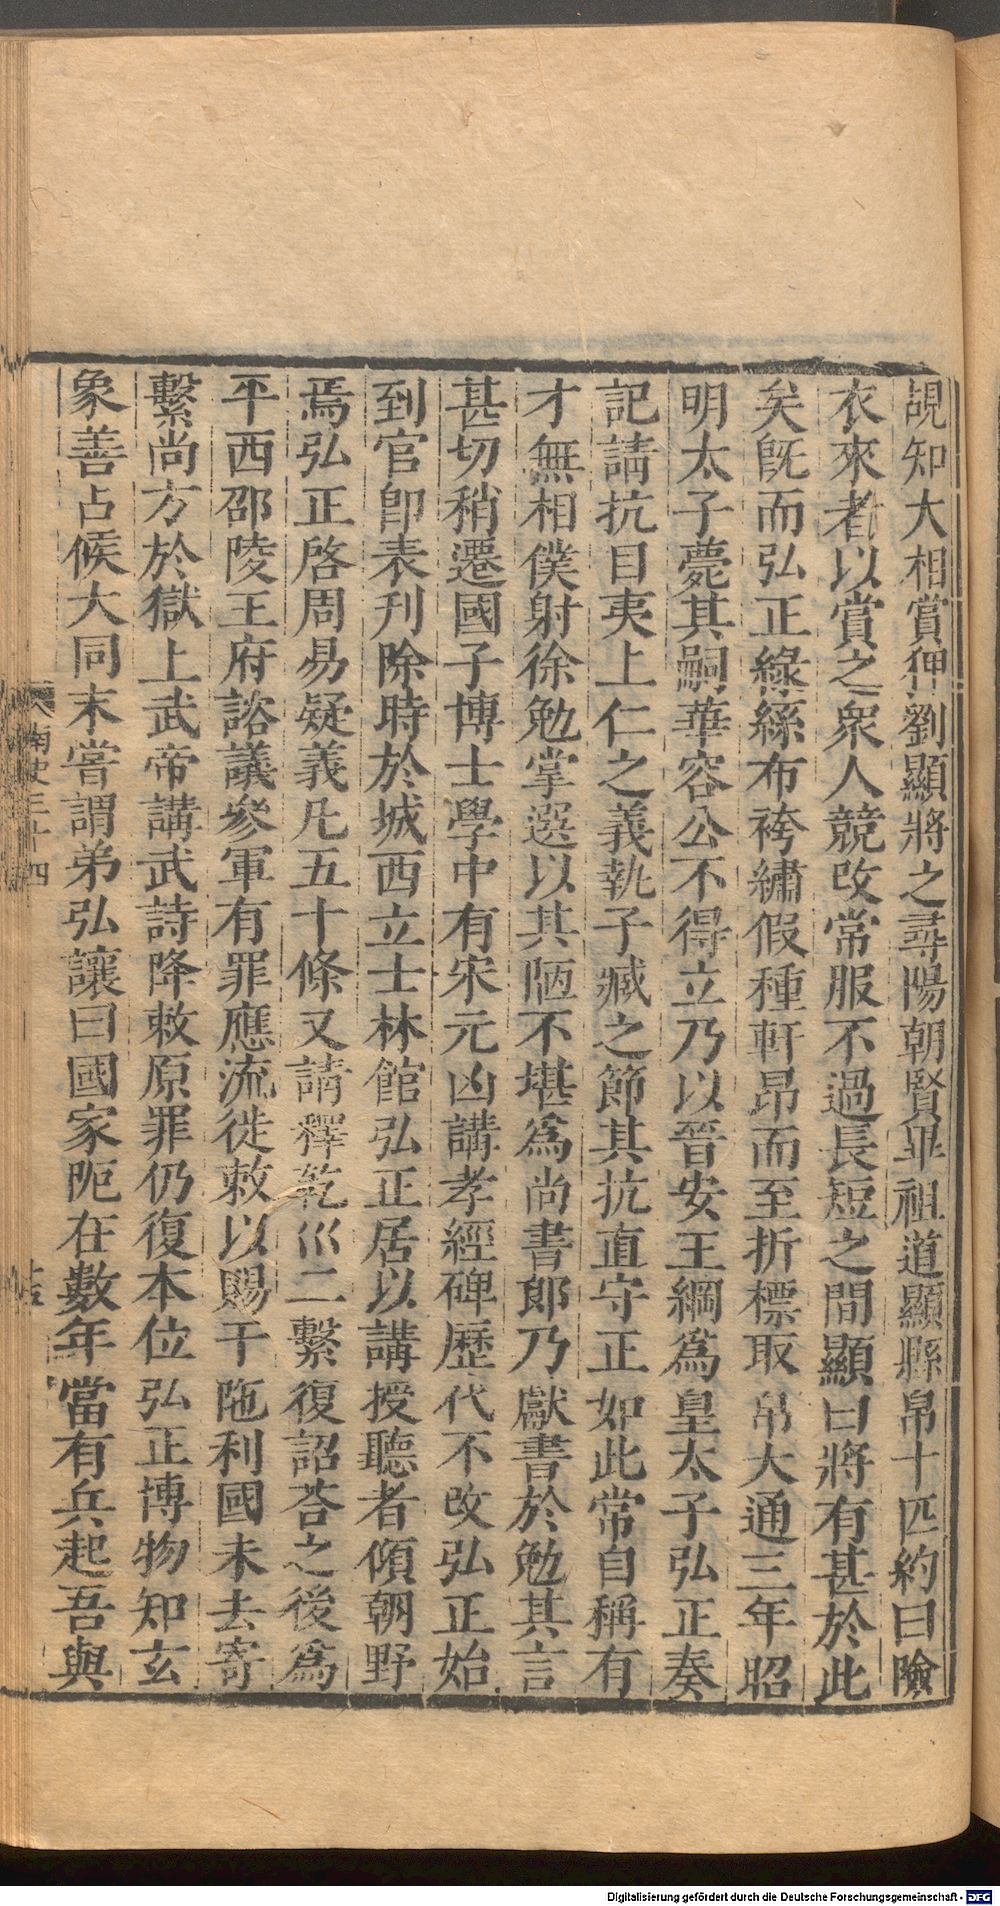 覘知大相賞狎劉顯將之尋陽朝賢畢祖道顯縣帛十匹約曰險
衣來者以賞之衆人競改常服不過長短之間顯曰將有甚於此
矣旣而弘正綠絲布袴繡假種軒昂而至折標取帛大通三年昭
明太子薨其嗣華容公不得立乃以晉安王綱爲皇太子弘正奏
記請抗目夷上仁之義執子臧之節其抗直守正如此常自稱有
才無相僕射徐勉掌選以其陋不堪爲尚書郎乃獻書於勉其言
甚切稍遷國子博士學中有宋元凶講孝經碑歷代不改弘正始
到官卽表刋除時於城西立士林館弘正居以講授聽者傾朝野
焉弘正啓周易疑義凡五十條又請釋乾巛二繫復詔荅之後爲
平西邵陵王府諮議參軍有罪應流徙敕以賜干陁利國未去寄
繫尚方於獄上武帝講武詩降敕原罪仍復本位弘正博物知玄
象善占候大同末嘗謂弟弘讓曰國家阨在數年當有兵起吾與
南史三十四
Digitalisierung gefördert durch die Deutsche Forschungsgemeinschaft - DFG